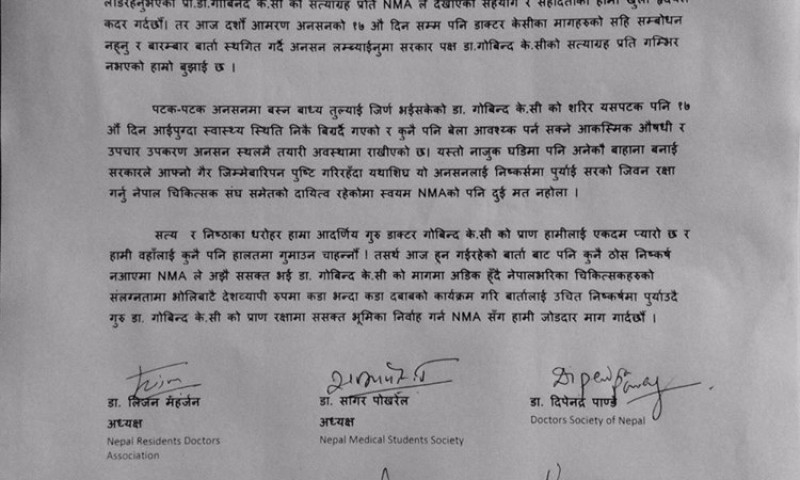 लीडरहनुभएका प्रा.डा.गोबिन्द के.सी को सत्याग्रह प्रति NMA ले देखाएको सहयोग र सहीदताको हामी खुला
कदर गर्दछौं। तर आज दशौं आमरण अनसनको १७ औं दिन सम्म पनि डाक्टर केसीका मागहरुको सहि सम्बोधन
नहुनु र बारम्बार बार्ता स्थगित गर्दै अनसन लम्ब्याईनुमा सरकार पक्ष डा.गोबिन्द के.सीको सत्याग्रह प्रति गम्भिर
नभएको हाम्रो बुझाई छ ।
पटक-पटक अनसनमा बस्न बाध्य तुल्याई जिर्ण भईसकेको डा. गोबिन्द के.सी को शरिर यसपटक पनि १७
औं दिन आईपुग्दा स्वास्थ्य स्थिति निकै बिग्रर्दै गएको र कुनै पनि बेला आवश्यक पर्न सक्ने आकस्मिक औषधी र
उपचार उपकरण अनसन स्थलमै तयारी अवस्थामा राखीएको छ। यस्तो नाजुक घडिमा पनि अनेकौ बाहाना बनाई
सरकारले आफ्नो गैर जिम्मेबारिपन पुष्टि गरिरहँदा यथाशिघ्र यो अनसनलाई निष्कर्समा पुर्याई सरको जिवन रक्षा
गर्नु नेपाल चिकित्सक संघ समेतको दायित्व रहेकोमा स्वयम NMAको पनि दुई मत नहोला ।
सत्य र निष्ठाका धरोहर हामा आदर्णिय गुरु डाक्टर गोबिन्द के.सी को प्राण हामीलाई एकदम प्यारो छ र
हामी वहाँलाई कुनै पनि हालतमा गुमाउन चाहन्नौं । तसर्थ आज हुन गईरहेको बार्ता बाट पनि कुनै ठोस निष्कर्ष
नआएमा NMA ले अझै ससक्त भई डा. गोबिन्द के.सी को मागमा अडिक हुँदै नेपालभरिका चिकित्सकहरुको
संलग्नतामा भोलिबाटै देशव्यापी रुपमा कडा भन्दा कडा दबाबको कार्यक्रम गरि बार्तालाई उचित निष्कर्षमा पुर्याउदै
गुरु डा. गोबिन्द के.सी को प्राण रक्षामा ससक्त भूमिका निर्वाह गर्न NMA सँग हामी जोडदार माग गार्दछौं ।
डा. लिजन महर्जन डा. सागर पोखरेल डा. दिपेन्द्र पाण्डे
अध्यक्ष अध्यक्ष Doctors Society of Nepal
Nepal Residents Doctors Nepal Medical Students Society
Association